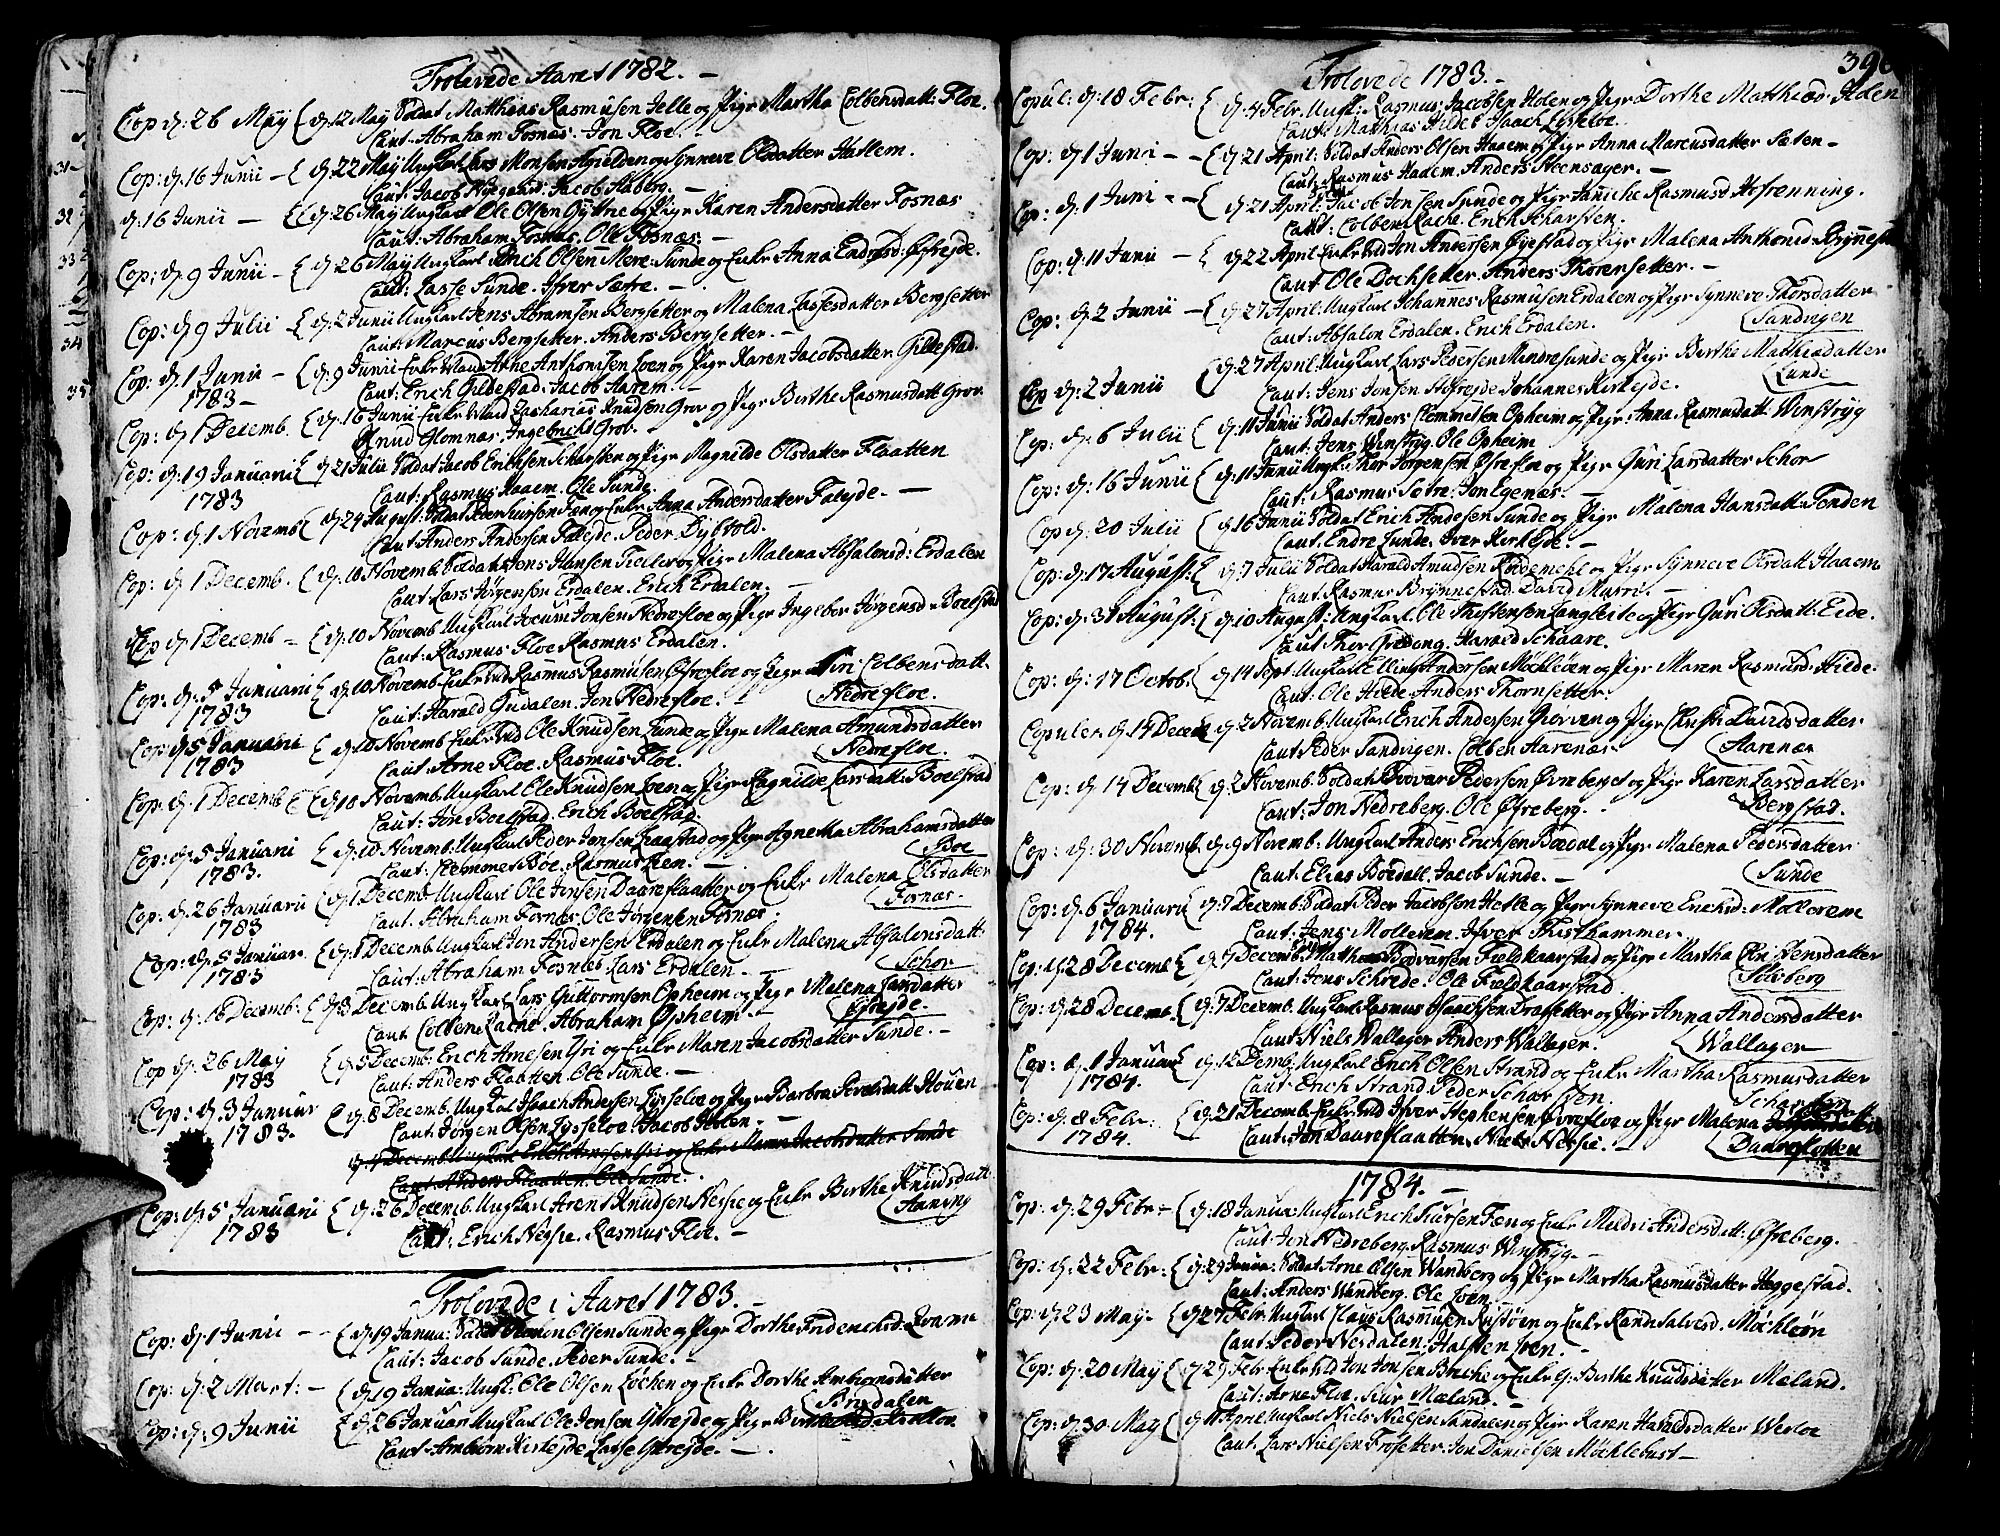 Trolovede Aaret 1782. –
Cop: d: 26 May { d: 12 May Soldat Matthias Rasmusen Telle og Pige Martha Colbensdatt: Floe.
Caut: Abraham Fosnæs. Jon Floe.
Cop: d: 16 Junii – { d: 22 May Ungkarl Lars Monsen og Pige Synneve Olsdatter Hallem.
Caut: Jacob Jacob Aaberg. –
d: 16 Junii – { d: 26 May Ungkarl Ole Olsen Gyttrie og Pige Karen Andersdatter Fosnæs
Caut: Abraham Fosnæs. Ole Fosnæs. –
Cop: d: 9 Junii – { d: 26 May Ungkarl Erich Olsen Mere Sunde og Enke Anna Endresd: Øfrejde.
Caut: Lasse Sunde. Ifver Sætre. –
Cop: d: 9 Julii – { d: 2 Junii Ungkarl Jens Abramsen Bergsetter og Malena Lassesdatter Bergsetter
Caut: Marcus Bergsetter. Anders Bergsetter. –
Cop: d: 1 Junii – { d: 9 Junii Enke Mand Arne Anthonisen Loen og Pige Karen Jacobsdatter Gildestad.
1783 –
Caut: Erich Gildestad. Jacob Aarem. –
Cop: d: 1 Decemb. { d: 16 Junii Enke Mand Zacharias Knudsen Grov og Pige Berthe Rasmusdatt Grov.
Knud Glomnæs. Ingebricht Grov.
Cop: d: 19 Januarii { d: 21 Julii Soldat Jacob Erichsen Scharsten og Pige Magnilde Olsdatter Flaatten
1783
Caut: Rasmus Haaem. Ole Sunde.
Cop: d: 1 Novemb { d: 24 August: Soldat Peder Siursen Tæn og Enke Anna Andersdatter Faleyde. –
Caut: Anders Andersen Faleyde. Peder Dybvold.
Cop: d: 1 Decemb. { d: 10 Novemb. Soldat Jens Hansen og Pige Malena Absalonsd: Erdalen
Caut: Lars Jørgensen Erdalen. Erich Erdalen. –
Cop d: 1 Decemb – { d: 10 Novemb. Ungkarl Joen Jonsen Nedrefloe og Pige Ingebor Jørgensd: Boelstad
Caut: Rasmus Floe. Rasmus Erdalen.
Cop: d: 5 Januarii { d: 10 Novemb. Enke Md Rasmus Rasmusen Øfrefloe og Pige Siri Colbensdatt.
1783
Caut: Harald Gudalen. Jon Nedrefloe. – Nedrefloe.
Cop: d: 5 Januarii { d: 10 Novemb Enke Md Ole Knudsen Sunde og Pige Malena Amundsdatter
1783
Caut: Arne Floe. Rasmus Floe. Nedrefloe.
Cop: d: 1 Decemb { d: 10 Novemb. Ungkarl Ole Knudsen Loen og Pige Ragnilde Larsdatt: Boelstad
Caut: Jon Boelstad. Erich Boelstad.
Cop: d: 5 Januarii { d: 10 Novemb: Ungkarl Peder Jensen og Pige Agnetha Abrahamsdatter
1783.
Caut: Clemmet Boe. Rasmus Rem. – Boe
Cop: d: 26 Januarii { d: 1 Decemb. Ungkarl Ole Jensen Daureflaatter og Enke Malena Olsdatter
1783
Caut: Abraham Fosnæs. Ole Jørgensen Fosnæs. Fosnæs.
Cop: d: 5 Januar. { d: 1 Decemb. Ungkarl Jon Andersen Erdalen og Enke Malena Absalonsdatt:
1783
Caut: Abraham Fosnæs. Lars Erdalen. – Schor
Cop: d: 16 Decemb: { d: 3 Decemb. Ungkarl Lars Guttormsen Opheim og Pige Malena Larsdatter
Caut: Colben Rache. Abraham Opheim. – Øfrejde.
Cop d: 26 May { d: 5 Decemb: Erich Arnesen Gri og Enke Maren Jacobsdatter Sunde. –
1783
Caut: Anders Flaatten. Ole Sunde. –
Cop: d: 3 Januar { d: 8 Decemb. Ungkarl Isaach Andersen Lysseloe og Pige Barbra Siversdatt Houen
1783.
Caut: Jørgen Olsen Lysseloe. Jacob Holen. –
Cop: d: 5 Januarii { d: 26 Decemb. Ungkarl Arent Knudsen Nesje og Enke Berthe Knudsdatt:
1783
Caut: Erich Nesje. Rasmus Floe. – Sanving
Trolovede i Aaret 1783. –
Cop: d: 1 Junii – – { d: 19 Janua: Soldat Olsen Sunde og Pige Dorthe Friderichsd:
Caut: Jacob Sunde. Peder Sunde. –
Cop: d: 2 Mart: – { d: 19 Janua: Ungk: Ole Olsen Lochen og Enke Dorthe Ambiornsdatter
Brydalen
Cop: d: 9 Junii { d: 26 Januar Ungkarl Ole Jensen Øfrejde og Pige
Caut: Ambiorn Kirkejde. Lasse Øfrejde. –
Trolovede 1783. –
396
Copul: d: 18 Febr: { d: 4 Febr. Ungk: Rasmus Jacobsen Holen og Pige Dorthe Matthiæd: Holen
Caut: Mathias Hilde. Isaach Lysseloe.
Cop: d: 1 Junii – – { d: 21 April: Soldat Anders Olsen Haaem og Pige Anna Marcusdatter Sæten –
Caut: Rasmus Haaem. Anders Steensager. –
Cop: d: 1 Junii – – { d: 21 April: Jacob Jonsen Sunde og Pige Janniche Rasmusd: Hofrenning.
Caut: Colben Rache. Erich Scharsten.
Cop: d: 11 Junii – { d: 22 April Enke Md Jon Andersen Øyestad og Pige Malena Anthonid: Brynnestad
Caut Ole Dochsetter. Anders Thorensetter. –
Cop: d: 2 Junii – { d: 27 April. Ungkarl Johannes Rasmusen Erdalen og Pige Synneve Thorsdatter
Caut: Absalon Erdalen. Erich Erdalen. Sandvigen
Cop d: 2 Junii { d: 27 April. Ungkarl Lars Pedersen Mindresunde og Pige Berthe Matthiasdatter
Caut: Jens Jonsen Hofrejde Johannes Kirkejde. Sunde
Cop: d: 6 Julii { d: 11 Junii Soldat Anders Clemmetsen Opheim og Pige: Anna Rasmusdatt: Winstryg
Caut. Jens Winstryg. Ole Opheim
Cop: d: 16 Junii { d: 11 Junii Ungk: Thor Jørgensen Øfrefloe og Pige Guri Larsdatter Schor
Caut: Rasmus Sætre: Jon Egenæs. –
Cop d: 20 Julii { d: 16 Junii Soldat Erich Andesen Sunde og Pige Malena Hansdatt: Tonden
Caut. Endre Sunde. Iver Kirkejde. –
Cop: d: 17 August: { d: 7 Julii Soldat Harald Amudsen og Pige Synneve Olsdatt Haaem
Caut: Rasmus Brynnestad. David Murri. –
Cop: d: 31 August: { d: 10 August: Ungkarl. Ole Thostensen Langsæte og Pige Guri Olsdatt: Eide.
Caut Thor Greding. Harald Schaare.
Cop: d: 17 Octob: { d: 14 Sept. Ungkarl Elling Andersen Møchleøen og Pige Maren Rasmusd: Hilde.
Caut: Ole Hilde. Anders Thornsetter.
Copuler d: 14 Decem { d: 2 Novemb. Ungkarl Erich Andersen Giørven og Pige Christi Davidsdatter
Caut: Peder Sandvigen. Colben Aarenæs. Aarenæs
Cop: d: 14 Decemb { d: 2 Novemb. Soldat Pedersen Øvreberget og Pige Karen Larsdatter
Caut: Jon Nedreberg. Ole Øfreberg. Bergstad.
Cop: d: 30 Novemb { d: 9 Novemb: Ungkarl Anders Erichsen Bødal og Pige Malena Pedersdatter
Caut: Elias Boedall. Jacob Sunde. – Sunde
Cop: d: 6 Januarii { d: 7 Decemb: Soldat Peder Jacobsen Hetle og Pige Synneve Erichsd: Mollerem
1784.
Caut: Jens Mollerem. Ifver Thisthammer.
Cop: d: 28 Decemb { d: 7 Decemb. Bødvarsen Fieldkaarstad og Pige Martha Christensdatter
Caut: Jens Schrede. Ole Fieldkaarstad. Solberg
Cop: d: 28 Decemb. { d: 7 Decemb. Ungkarl Rasmus Isaachsen Træsetter og Pige Anna Andersdatter
Caut Niels Wallager Anders Wallager. Wallager
Cop: d: 1 Januar { d: 12 Demb. Ungkarl Erich Olsen Strand og Enke Martha Rasmusdatter
1784.
Caut: Erich Strand. Peder Scharsten. Scharsten
Cop: d: 8 Febr: { d: 21 Decemb. Enke Md Ifver Stephensen Øvrefloe og Pige Malena
1784.
Caut: Jon Daureflaatten. Niels Nesje. – Daureflotten
1784. –
Cop: d: 29 Febr: – { d: 18 Janua: Ungkarl Erich Siursen Tæn og Enke Mildri Andersdatt: Øfreberg.
Caut: Jon Nedreberg. Rasmus Winstryg. –
Cop: d: 22 Febr: { d: 29 Janua: Soldat Arne Olsen Wandberg og Pige Martha Rasmusdatter Heggestad.
Caut: Anders Wandberg. Ole Loen.
Cop: d: 23 May – { d: 27 Febr. Ungkarl Claus Rasmusen Rustøen og Enke Randi Salvesd. Møchleøn
Caut: Peder Nesdalen. Halsten Loen. –
Cop: d: 20 May { d: 29 Febr. Enke Md Jon Jonsen Bruche og Enke G: Berthe Knudsdatter Mæland.
Caut: Arne Floe. Siur Mæland. –
Cop: d: 30 May { d: 11 April. Ungkarl Niels Nielsen Sandalen og Pige Karen Hansdatter Wesloe
Caut. Lars Nielsen Frøsetter. Jon Danielsen Møchlebust –